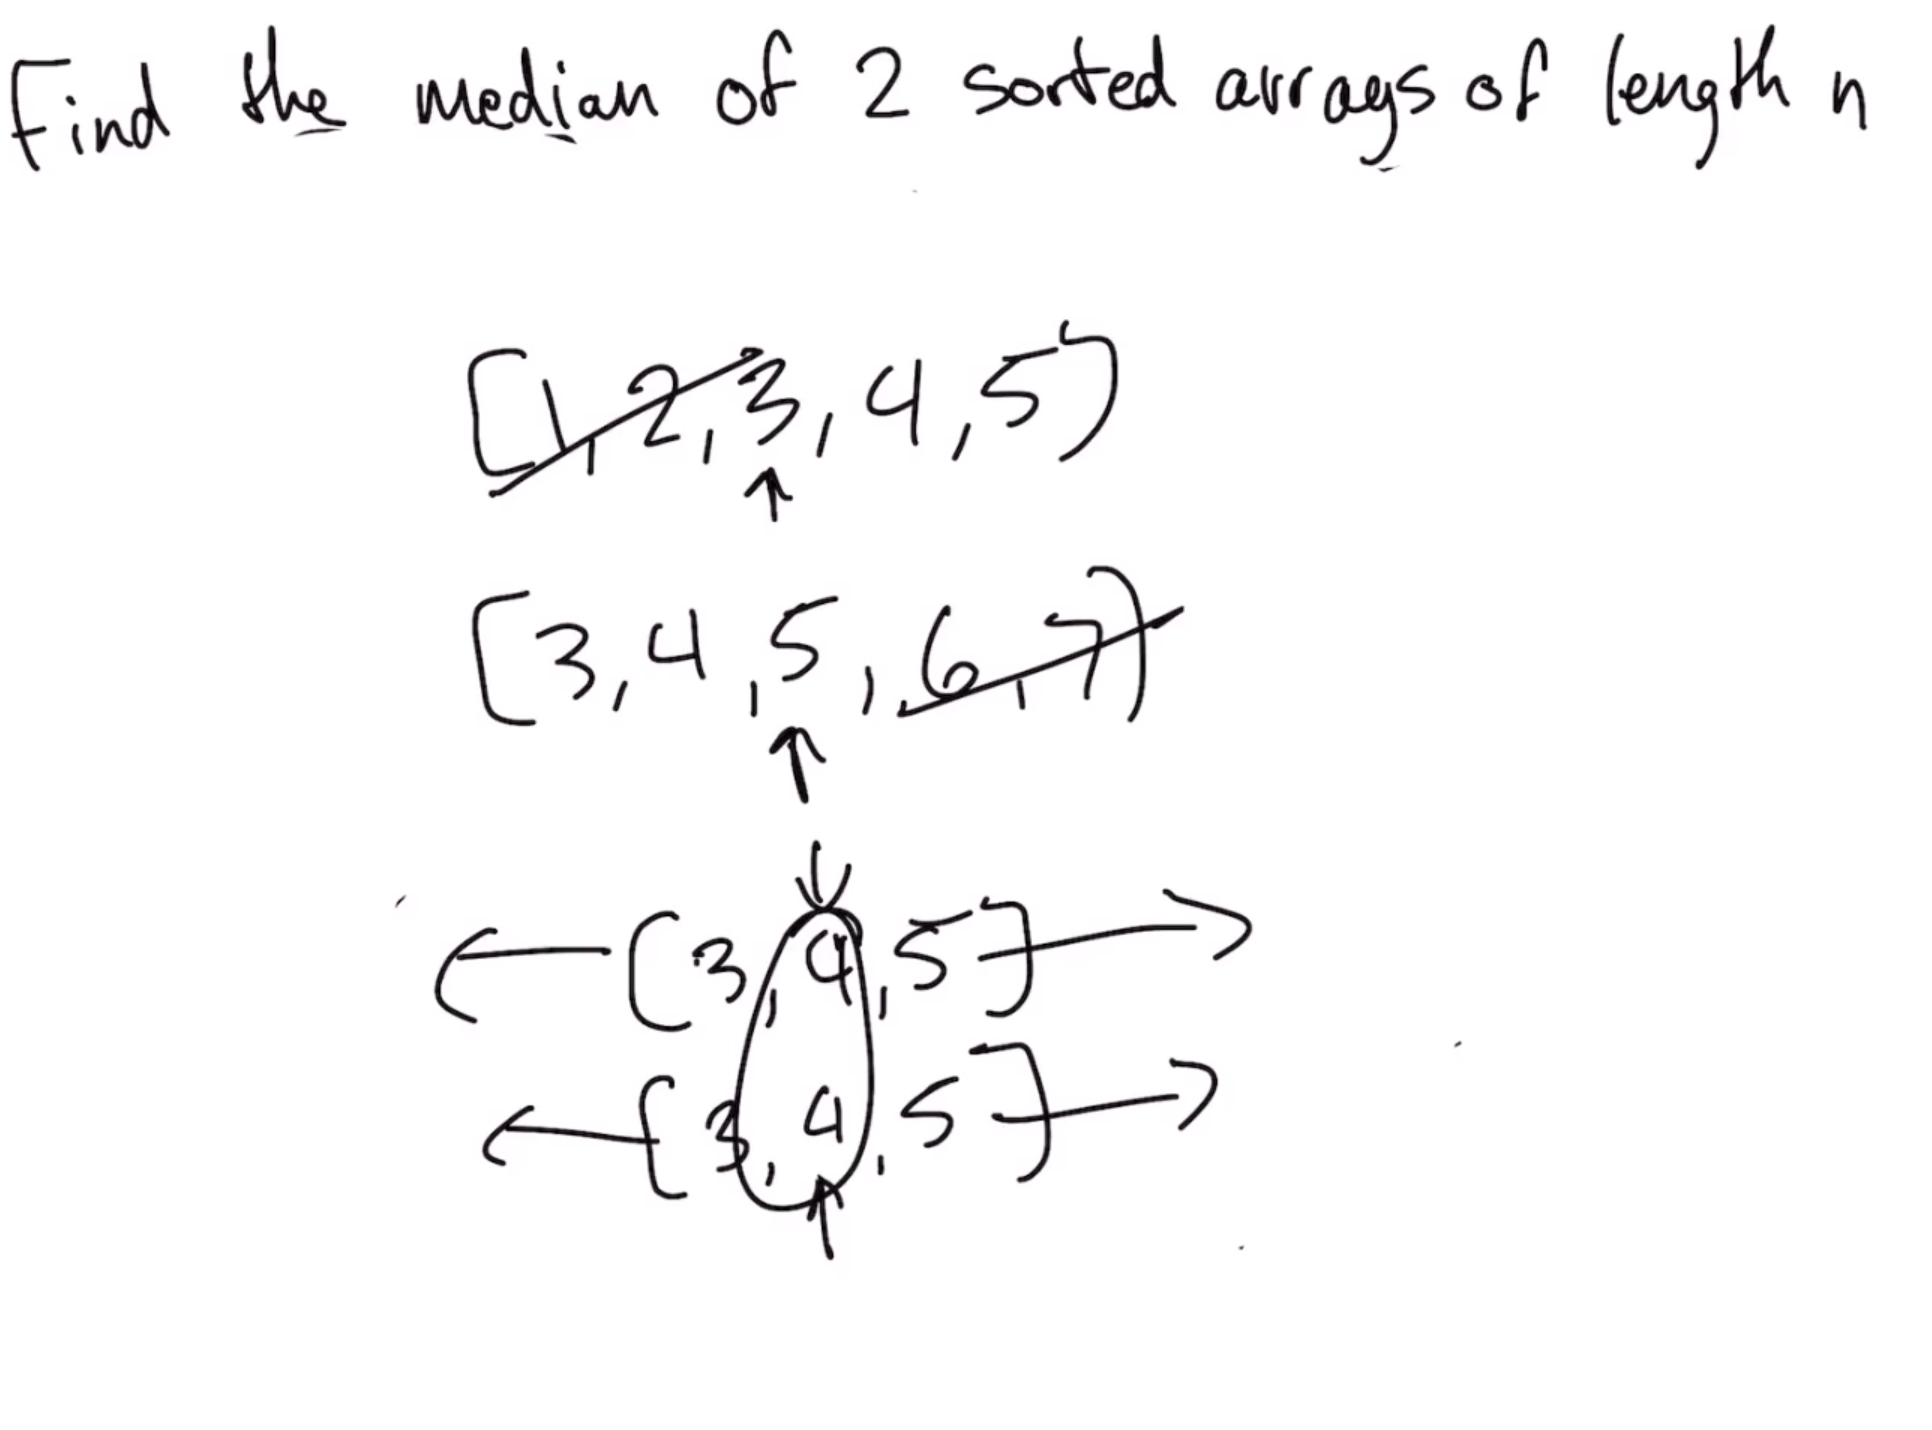 Find the median of 2 sorted arrays of length n
[1, 2, 3, 4, 5]
[3, 4, 5, 6, 7]
[3, 4, 5]
[3, 4, 5]